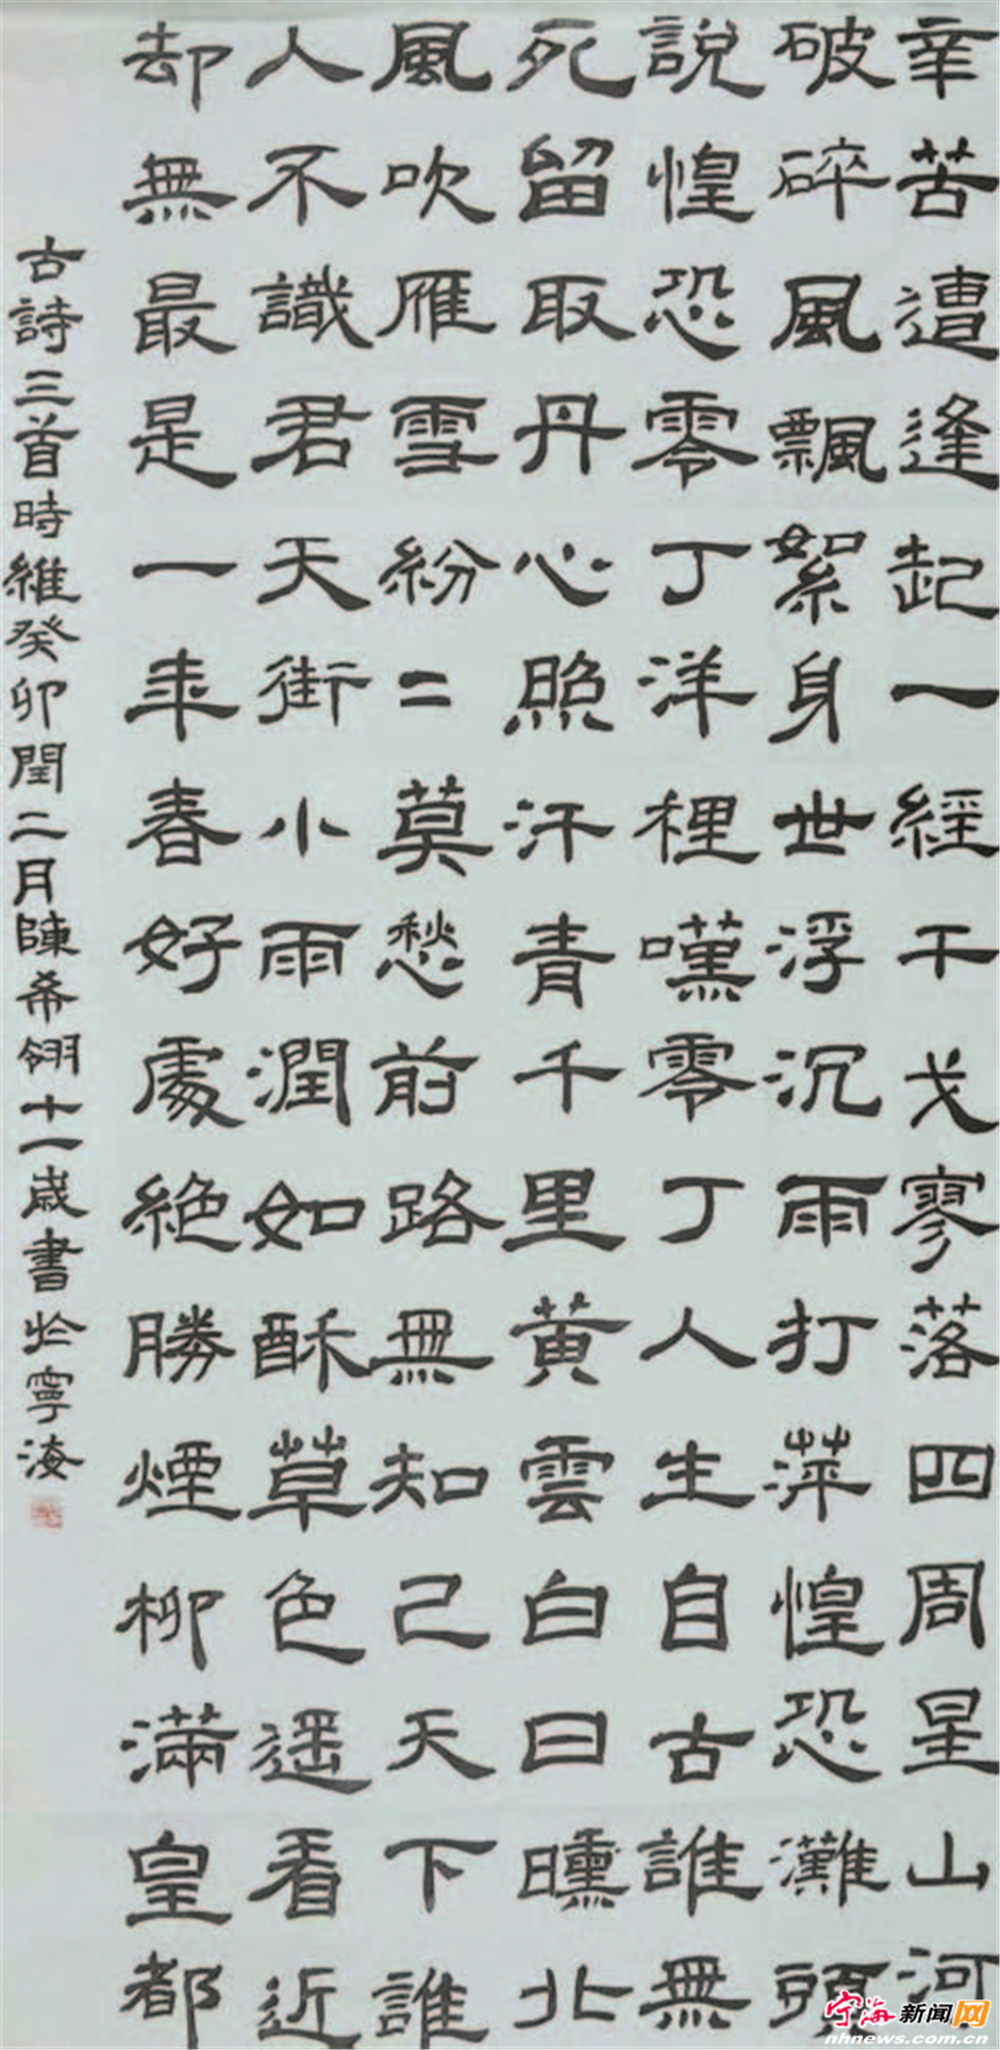 辛苦遭逢起一經干戈寥落四周星山河
破碎風飄絮身世浮沉雨打萍惶恐灘頭
說惶恐零丁洋裡嘆零丁人生自古誰無
死留取丹心照汗青千里黃雲白日曛北
風吹雁雪紛二莫愁前路無知己天下誰
人不識君天街小雨潤如酥草色遙看近
却無最是一年春好處絕勝煙柳滿皇都
古詩三首時維癸卯閏二月陳希翎十一歲書於寧海
宁海新闻网
nhnews.com.cn